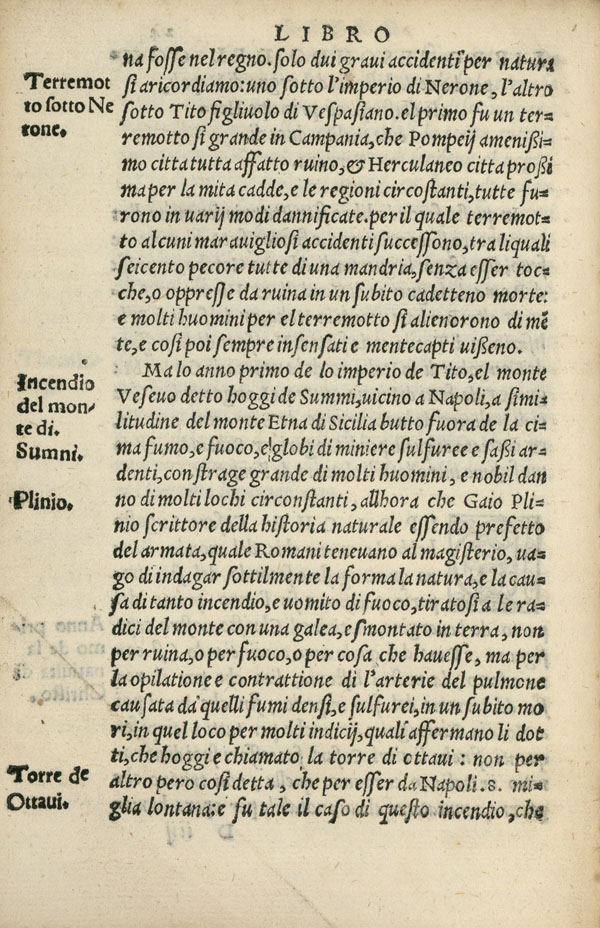 LIBRO
na fosse nel regno. solo dui graui accidenti per natura
Terremot
to sotto Ne
rone.
si aricordiamo: uno sotto l'imperio di Nerone, l'altro
sotto Tito figliuolo di Vespasiano. el primo fu un ter=
remotto si grande in Campania, che Pompeij amenißi=
mo citta tutta affatto ruino, & Herculaneo citta proßi
ma per la mita cadde, e le regioni circostanti, tutte fu=
rono in uarij modi dannificate. per il quale terremot=
to alcuni marauigliosi accidenti successono, tra liquali
seicento pecore tutte di una mandria, senza esser toc=
che, o oppresse da ruina in un subito cadetteno morte:
e molti huomini per el terremotto si alienorono di mẽ
te, e cosi poi sempre insensati e mentecapti uißeno.
Incendio
del mon-
te di.
Summi.
Ma lo anno primo de lo imperio de Tito, el monte
Veseuo detto hoggi de Summi, uicino a Napoli, a simi=
litudine del monte Etna di Sicilia butto fuora de la ci=
ma fumo, e fuoco, e globi di miniere sulfuree e saßi ar=
denti, con strage grande di molti huomini, e nobil dan
Plinio.
no di molti lochi circonstanti, allhora che Gaio Pli=
nio scrittore della historia naturale essendo prefetto
del armata, quale Romani teneuano al magisterio, ua=
go di indagar sottilmente la forma la natura, e la cau=
sa di tanto incendio, e uomito di fuoco, tiratosi a le ra=
dici del monte con una galea, e smontato in terra, non
per ruina, o per fuoco, o per cosa che hauesse, ma per
la opilatione e contrattione di l'arterie del pulmone
causata da quelli fumi densi, e sulfurei, in un subito mo
ri, in quel loco per molti indicij, quali affermano li dot
ti, che hoggi e chiamato la torre di ottaui: non per
Torre de
Ottaui.
altro pero cosi detta, che per esser da Napoli .8. mi=
glia lontana: e fu tale il caso di questo incendio, che